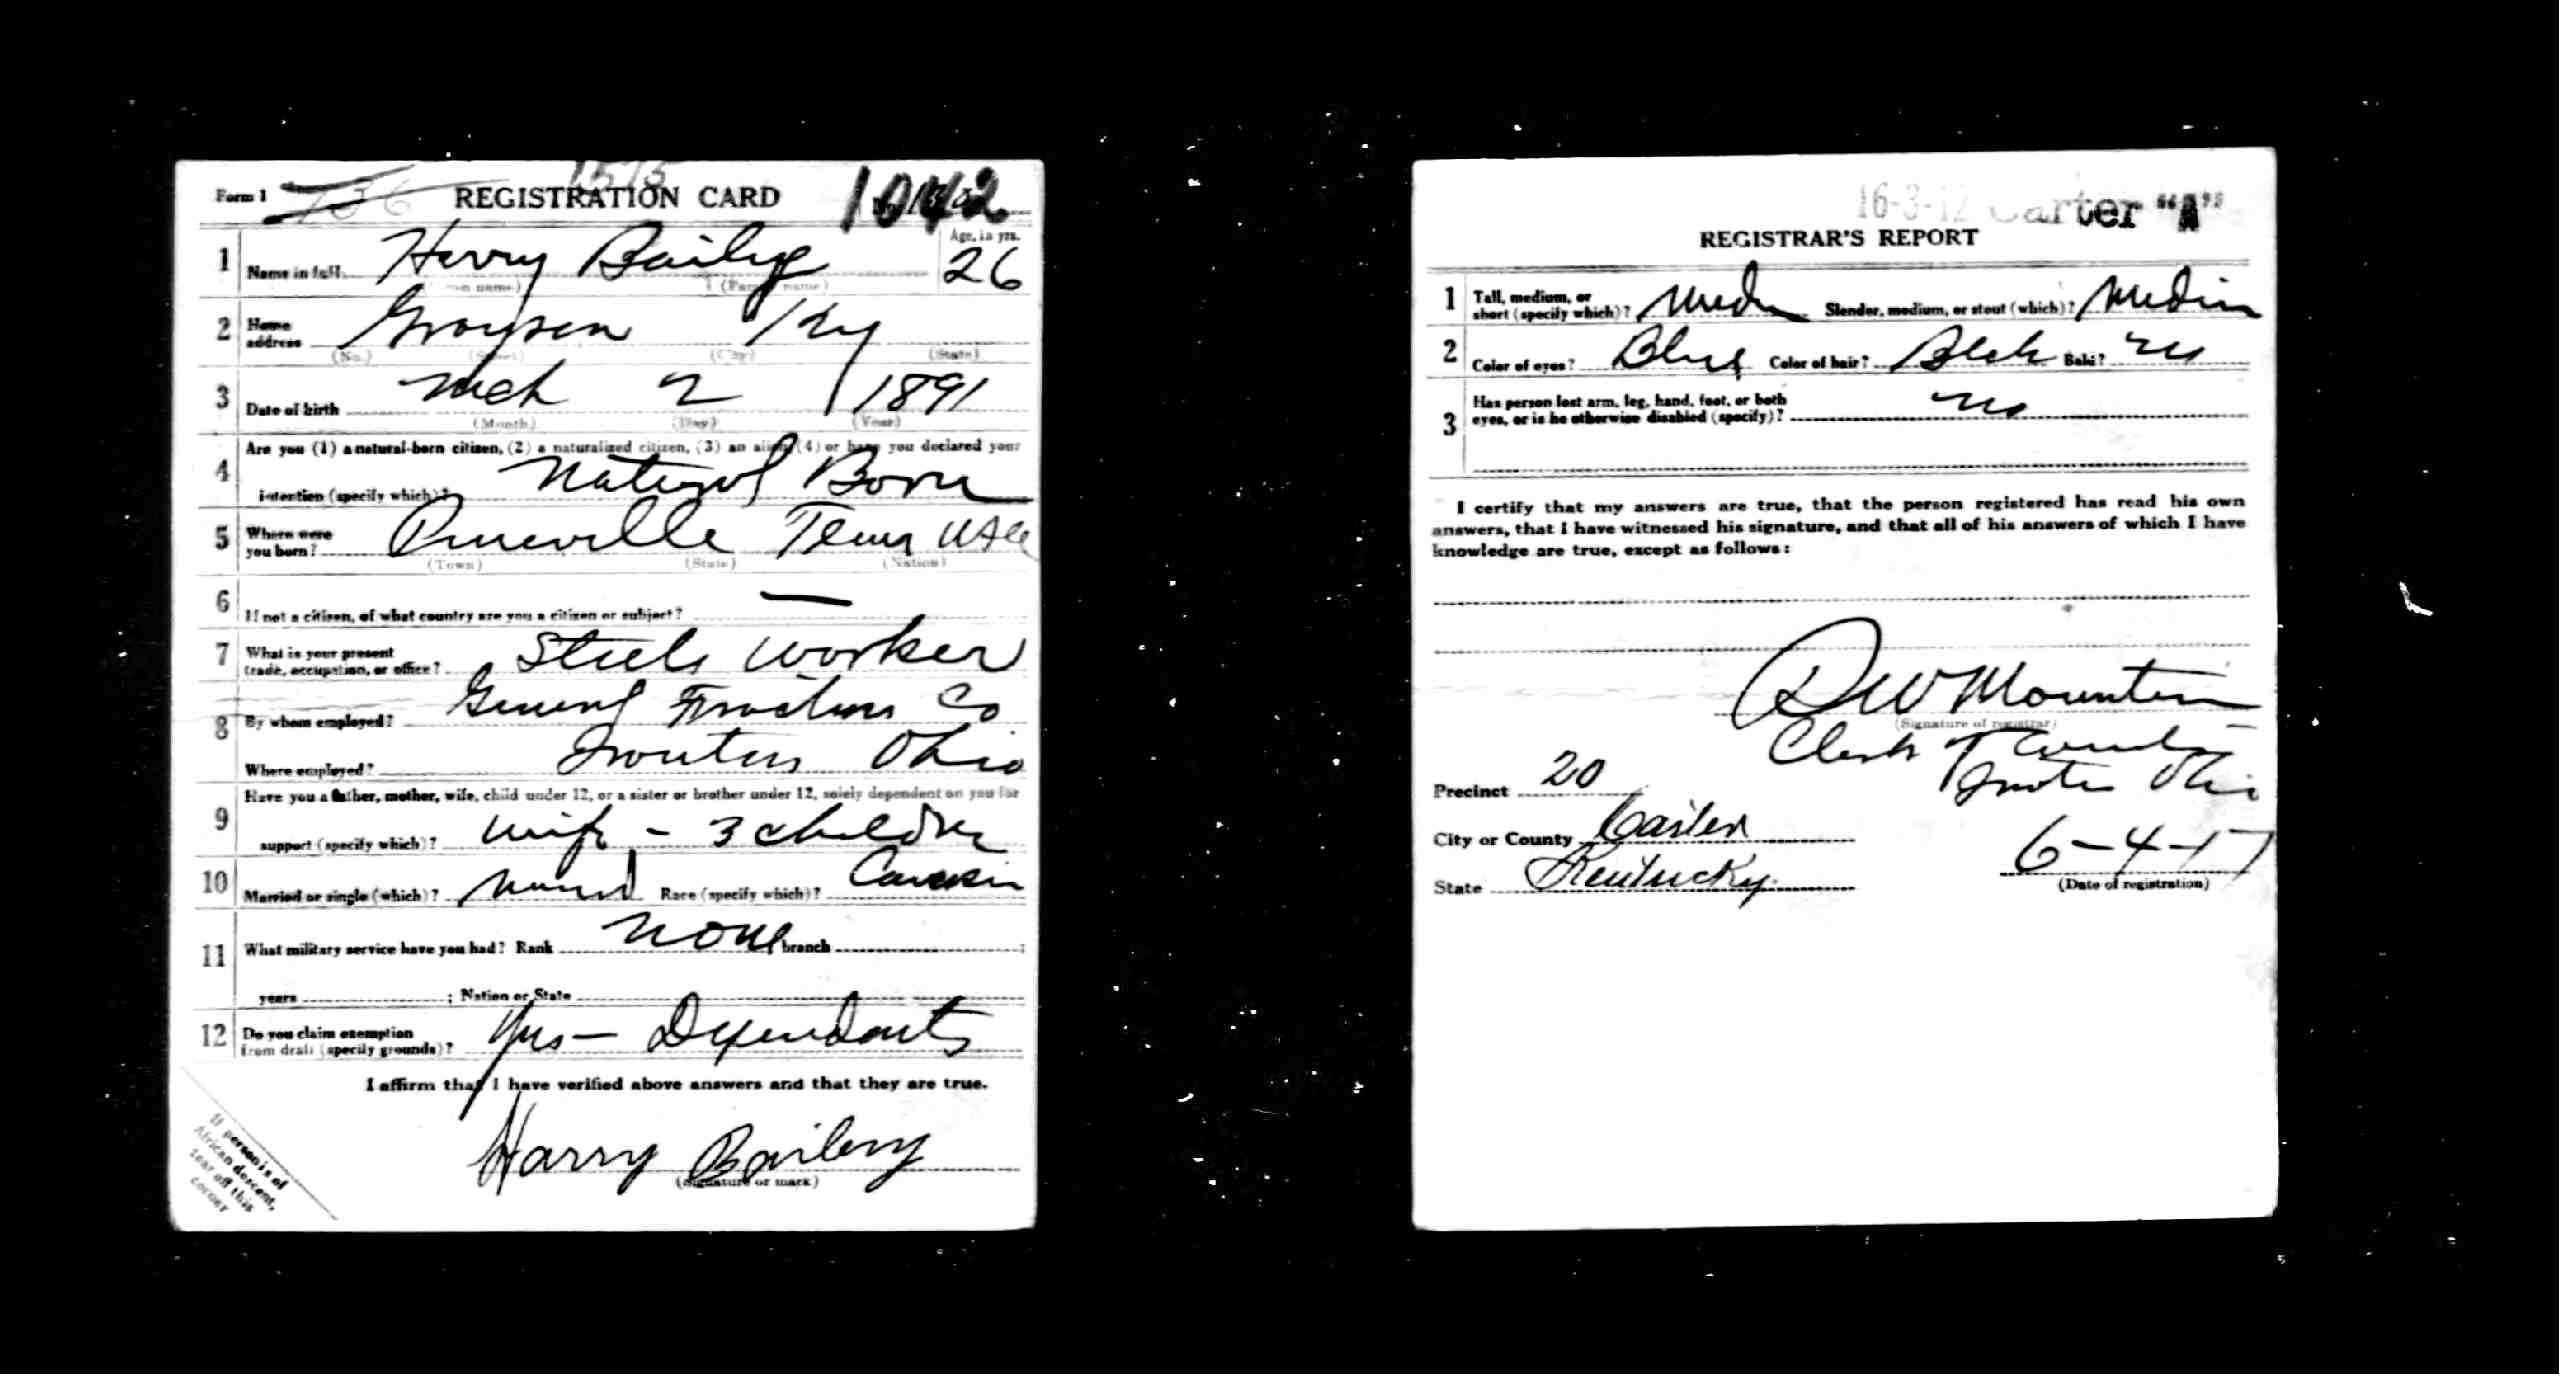 Form 1 736 REGISTRATION CARD 1575 1042
1 Name in full Harry Baily Age, in yrs. 26
(Given name) (Family name)
2 Home address Grayson Ky
(No.) (Street) (City) (State)
3 Date of birth Mch 2 1891
(Month) (Day) (Year)
4 Are you (1) a natural-born citizen, (2) a naturalized citizen, (3) an alien, (4) or have you declared your
intention (specify which)? Natural Born
5 Where were you born? Pineville Tenn USA
(Town) (State) (Nation)
6 If not a citizen, of what country are you a citizen or subject? —
7 What is your present trade, occupation, or office? Steele Worker
8 By whom employed? General Co
Where employed? Ironton Ohio
9 Have you a father, mother, wife, child under 12, or a sister or brother under 12, solely dependent on you for
support (specify which)? wife - 3 children
10 Married or single (which)? Married Race (specify which)? Caucasin
11 What military service have you had? Rank none branch ;
years ; Nation or State
12 Do you claim exemption from draft (specify grounds)? Yes — Dependants
I affirm that I have verified above answers and that they are true.
Harry Bailery
(Signature or mark)
If person is of
African descent,
tear off this
corner
16-3-12 Carter "A"
REGISTRAR'S REPORT
1 Tall, medium, or short (specify which)? Medim Slender, medium, or stout (which)? Medim
2 Color of eyes? Blue Color of hair? Black Bald? no
3 Has person lost arm, leg, hand, foot, or both eyes, or is he otherwise disabled (specify)? no
I certify that my answers are true, that the person registered has read his own
answers, that I have witnessed his signature, and that all of his answers of which I have
knowledge are true, except as follows:
D W Mountain
(Signature of registrar)
Clerk
Ironton Ohio
Precinct 20
City or County Carter
State Kentucky
6-4-17
(Date of registration)